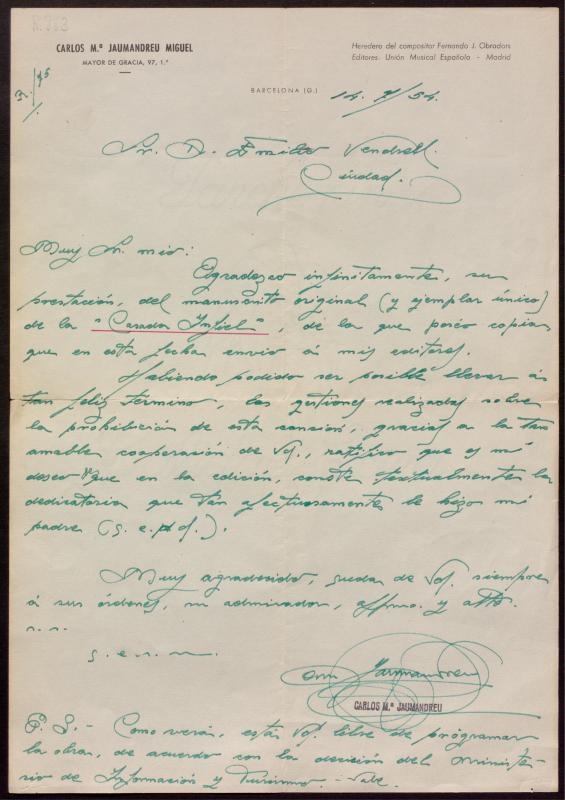 R. 963
CARLOS M.ª JAUMANDREU MIGUEL
MAYOR DE GRACIA, 97, 1.º
Heredero del compositor Fernando J. Obradors
Editores: Unión Musical Española - Madrid
BARCELONA (G.)
14. 7/54.
Sr. D. Emilio Vendrell.
Ciudad.
Muy Sr. mio:
Agradezco infinitamente, su
prestación, del manuscrito original (y ejemplar único)
de la "Casada Infiel", de la que poseo copia
que en esta fecha envio á mis editores.
Habiendo podido ser posible llevar á
tan feliz término, las gestiones realizadas sobre
la prohibición de esta canción, gracias a la tan
amable cooperación de Vd., ratifico que es mi
deseo que en la edición, conste textualmente la
dedicatoria que tan afectuosamente le hizo mi
padre (q. e. p. d.).
Muy agradecido, queda de Vd. siempre
á sus órdenes, su admirador, affmo. y atto.
s. s.
q. e. s. m.
Jaumandreu
CARLOS M.ª JAUMANDREU
P. S.- Como verá, está Vd. libre de programar
la obra, de acuerdo con la decisión del Ministe-
rio de Información y Turismo. - Vale.